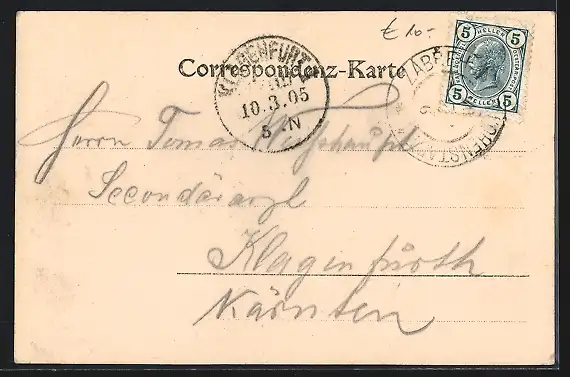 € 10.-
5 HELLER 5
5 HELLER 5
Correspondenz-Karte
KLAGENFURT
10.3.05
5.N
HOHENSTADT
Herrn Tomas
Secondärarzt
Klagenfurth
Kärnten